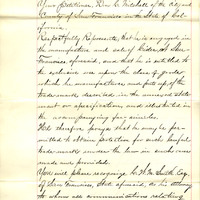 Your Petitioner, Rice B. Mitchell of the City and
County of San Francisco in the State of Cal-
ifornia
Respectfully Represents, that he is engaged in
the manufacture and sale of Cider, at San
Francisco aforesaid, and that he is entitled to
the exclusive use upon the class of goods
which he manufactures and puts up of the
trade marks described in the annexed state-
ment or specifications and exhibited in
the accompanying fac-similes.
He therefore prays that he may be per-
mitted to obtain protection for such lawful
trade marks under the law in such case
made and provided.
You will please recognize W. M. Smith, Esq.
of San Francisco, State aforesaid, as his attorney
to whom all communications relating